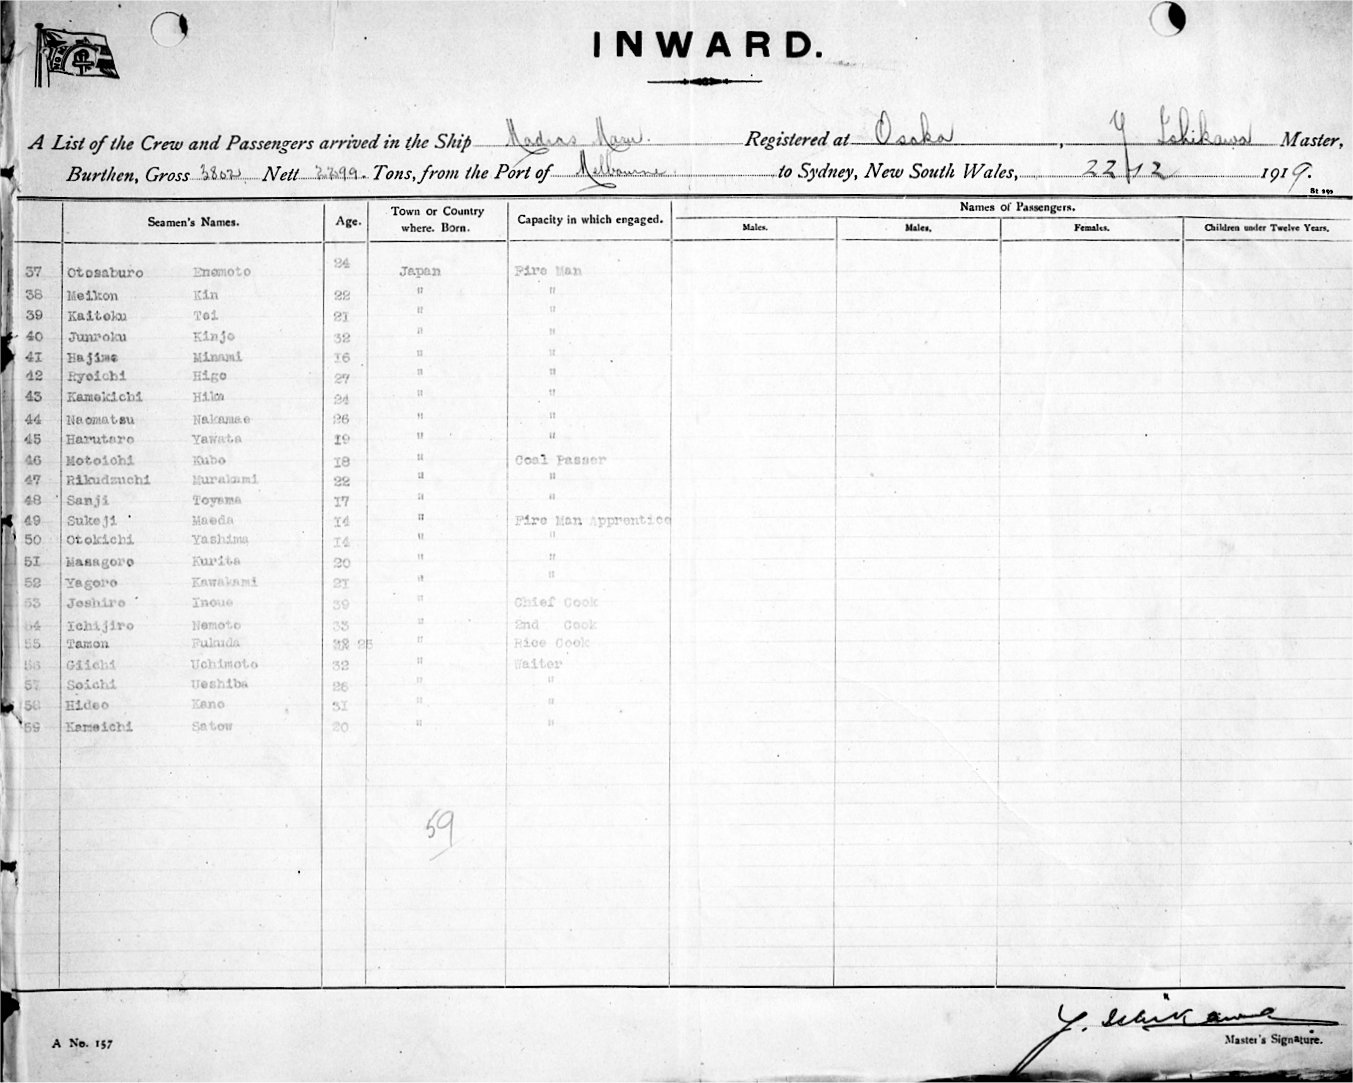 INWARD.
A List of the Crew and Passengers arrived in the Ship Madras Maru. Registered at Osaka, Y Ishikawa Master,
Burthen, Gross 3802 Nett 2299. Tons, from the Port of Melbourne to Sydney, New South Wales, 22/12 1919.
St 199
Seamen's Names. Age. Town or Country where. Born. Capacity in which engaged. Names of Passengers.
Males. Males. Females. Children under Twelve Years.
37 Otosaburo Enomoto 24 Japan Fire Man
38 Meikon Kin 22 " "
39 Kaitoku Tei 21 " "
40 Junroku Kinjo 32 " "
41 Hajime Minami 16 " "
42 Ryoichi Higo 27 " "
43 Kamekichi Hika 24 " "
44 Naomatsu Nakamae 26 " "
45 Harutaro Yawata 19 " "
46 Motoichi Kubo 18 " Coal Passer
47 Rikudzuchi Murakami 22 " "
48 Sanji Toyama 17 " "
49 Sukeji Maeda 14 " Fire Man Apprentice
50 Otokichi Yashima 14 " "
51 Masagoro Kurita 20 " "
52 Yagoro Kawakami 21 " "
53 Joshiro Inoue 39 " Chief Cook
54 Ichijiro Nemoto 33 " 2nd Cook
55 Tamon Fukuda 25 " Rice Cook
56 Giichi Uchimoto 32 " Waiter
57 Soichi Ueshiba 26 " "
58 Hideo Kano 31 " "
59 Kameichi Satow 20 " "
59
Y. Ishikawa
A No. 157 Master's Signature.